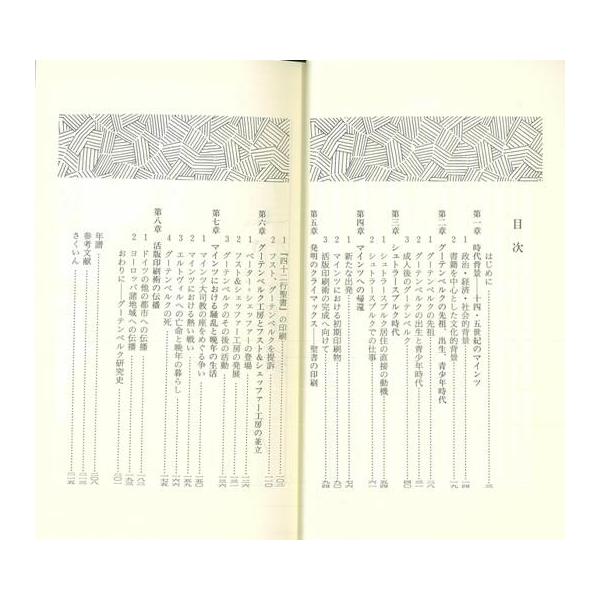 目次
はじめに
第一章 時代背景――十四・五世紀のマインツ
1 政治・経済・社会的背景
2 書籍を中心とした文化的背景
第二章 グーテンベルクの先祖、出生、青少年時代
1 グーテンベルクの先祖
2 グーテンベルクの出生と青少年時代
3 成人後のグーテンベルク
第三章 シュトラースブルク時代
1 シュトラースブルク居住の直接の動機
2 シュトラースブルクでの仕事
第四章 マインツへの帰還
1 新たな出発
2 マインツにおける初期印刷物
3 活版印刷術の完成へ向けて
第五章 発明のクライマックス――聖書の印刷
1 『四十二行聖書』の印刷
2 フスト、グーテンベルクを提訴
第六章 グーテンベルク工房とフスト&シェッファー工房の並立
1 ペーター・シェッファーの登場
2 フスト&シェッファー工房の発展
3 グーテンベルクのその後の活動
第七章 マインツにおける騒乱と晩年の生活
1 マインツ大司教の座をめぐる争い
2 マインツにおける熱い戦い
3 エルトヴィルへの亡命と晩年の暮らし
4 グーテンベルクの死
第八章 活版印刷術の伝播
1 ドイツの他の都市への伝播
2 ヨーロッパ諸地域への伝播
おわりに――グーテンベルク研究史
年譜
参考文献
さくいん